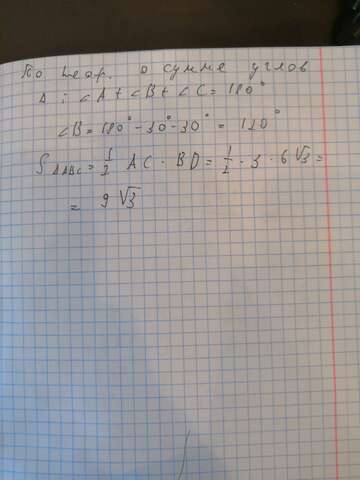 По теор. о сумме углов
Δ : ∠A + ∠B + ∠C = 180°
∠B = 180° - 30° - 30° = 120°
S ΔABC = 1/2 AC · BD = 1/2 · 3 · 6√3 =
= 9√3